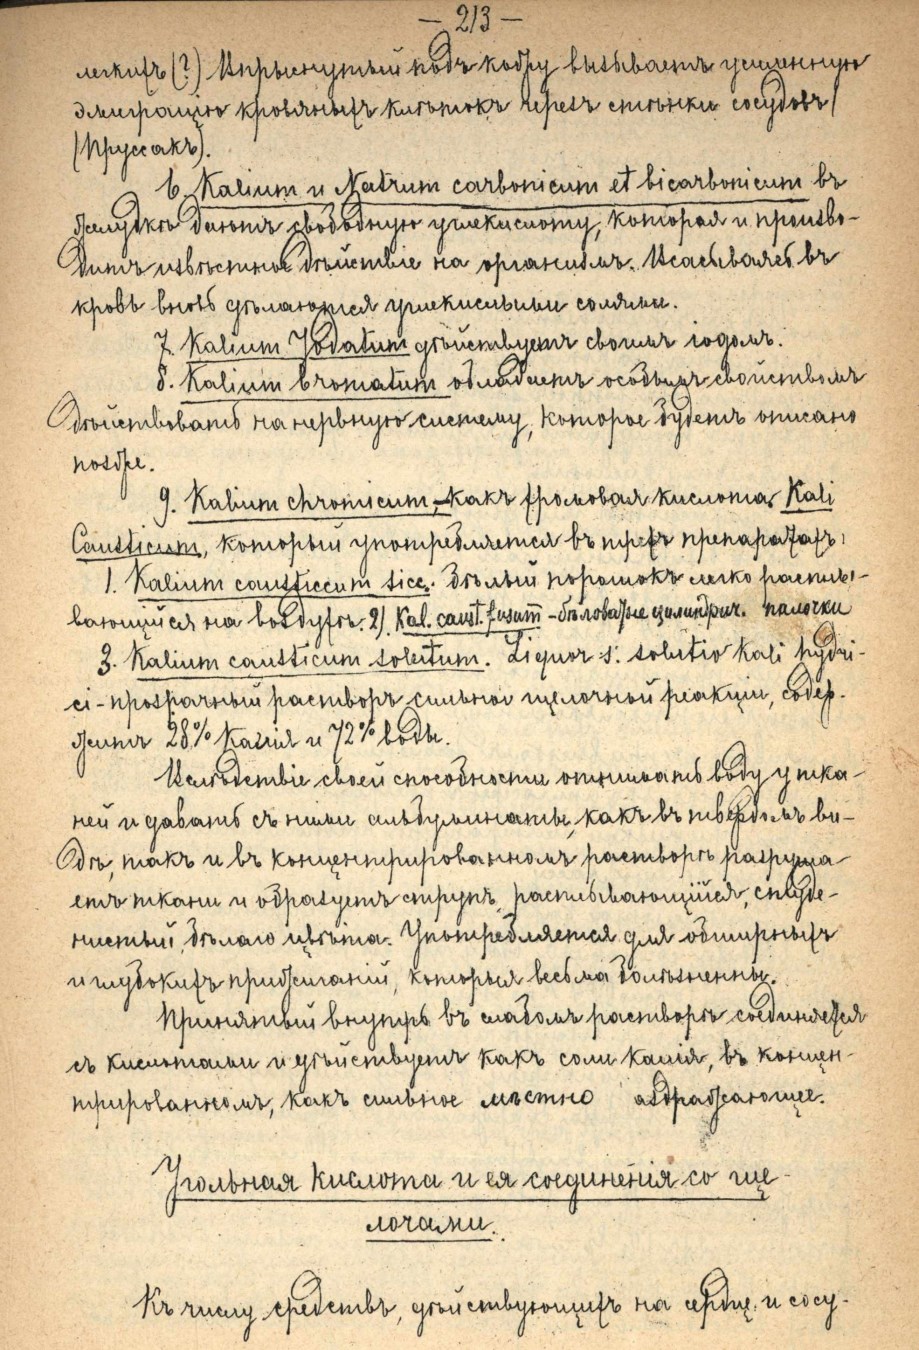 — 213 —
легкихъ (?) Впрыснутый подъ кожу вызываетъ усиленную
эмиграцію кровяныхъ клѣтокъ черезъ стѣнки сосудовъ
(Пруссакъ).
6. Kalium и Natrum carbonicum et bicarbonicum въ
желудкѣ даютъ свободную углекислоту, которая и произво-
дитъ извѣстное дѣйствіе на организмъ. Всасываясь въ
кровь вновь дѣлаются углекислыми солями.
7. Kalium Jodatum дѣйствуетъ своимъ іодомъ.
8. Kalium bromatum обладаетъ особымъ свойствомъ
дѣйствовать на нервную систему, которое будетъ описано
позже.
9. Kalium chromicum,—какъ хромовая кислота. Kali
Causticum, который употребляется въ трехъ препаратахъ:
1. Kalium causticcum sicc. бѣлый порошокъ легко расплы-
вающійся на воздухѣ. 2) Kal. caust. fusum̅ — бѣловатые цилиндрич. палочки
3. Kalium causticum solutum. Liquor s. solutio Kali hydri-
ci - прозрачный растворъ сильной щелочной реакціи, содер-
житъ 28% Калія и 72% воды.
Вслѣдствіе своей способности отнимать воду у тка-
ней и давать съ ними альбуминаты, какъ въ твердомъ ви-
дѣ, такъ и въ концентрированномъ растворѣ разруша-
етъ ткани и образуетъ струпъ, расплывающійся, студе-
нистый, бѣлаго цвѣта. Употребляется для обширныхъ
и глубокихъ прижиганій, которыя весьма болѣзненны.
Принятый внутрь въ слабомъ растворѣ соединяется
съ кислотами и дѣйствуетъ какъ соли калія, въ концен-
трированномъ, какъ сильное мѣстно раздражающее.
Угольная кислота и ея соединенія со ще-
лочами.
Къ числу средствъ, дѣйствующихъ на сердце и сосу-